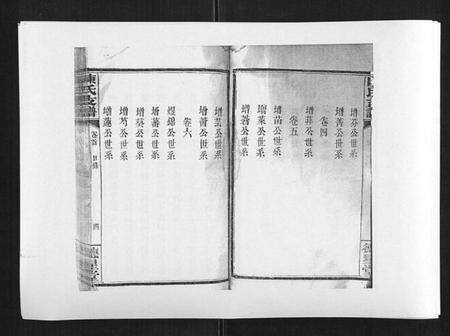 增芬公世系
增善公世系
卷四
增菲公世系
卷五
增苗公世系
增萊公世系
增蓍公世系
增荃公世系
增蕾公世系
卷六
增錦公世系
增蕃公世系
增葵公世系
增芍公世系
增蓮公世系
陳氏支譜
卷首
目錄
四
德星堂